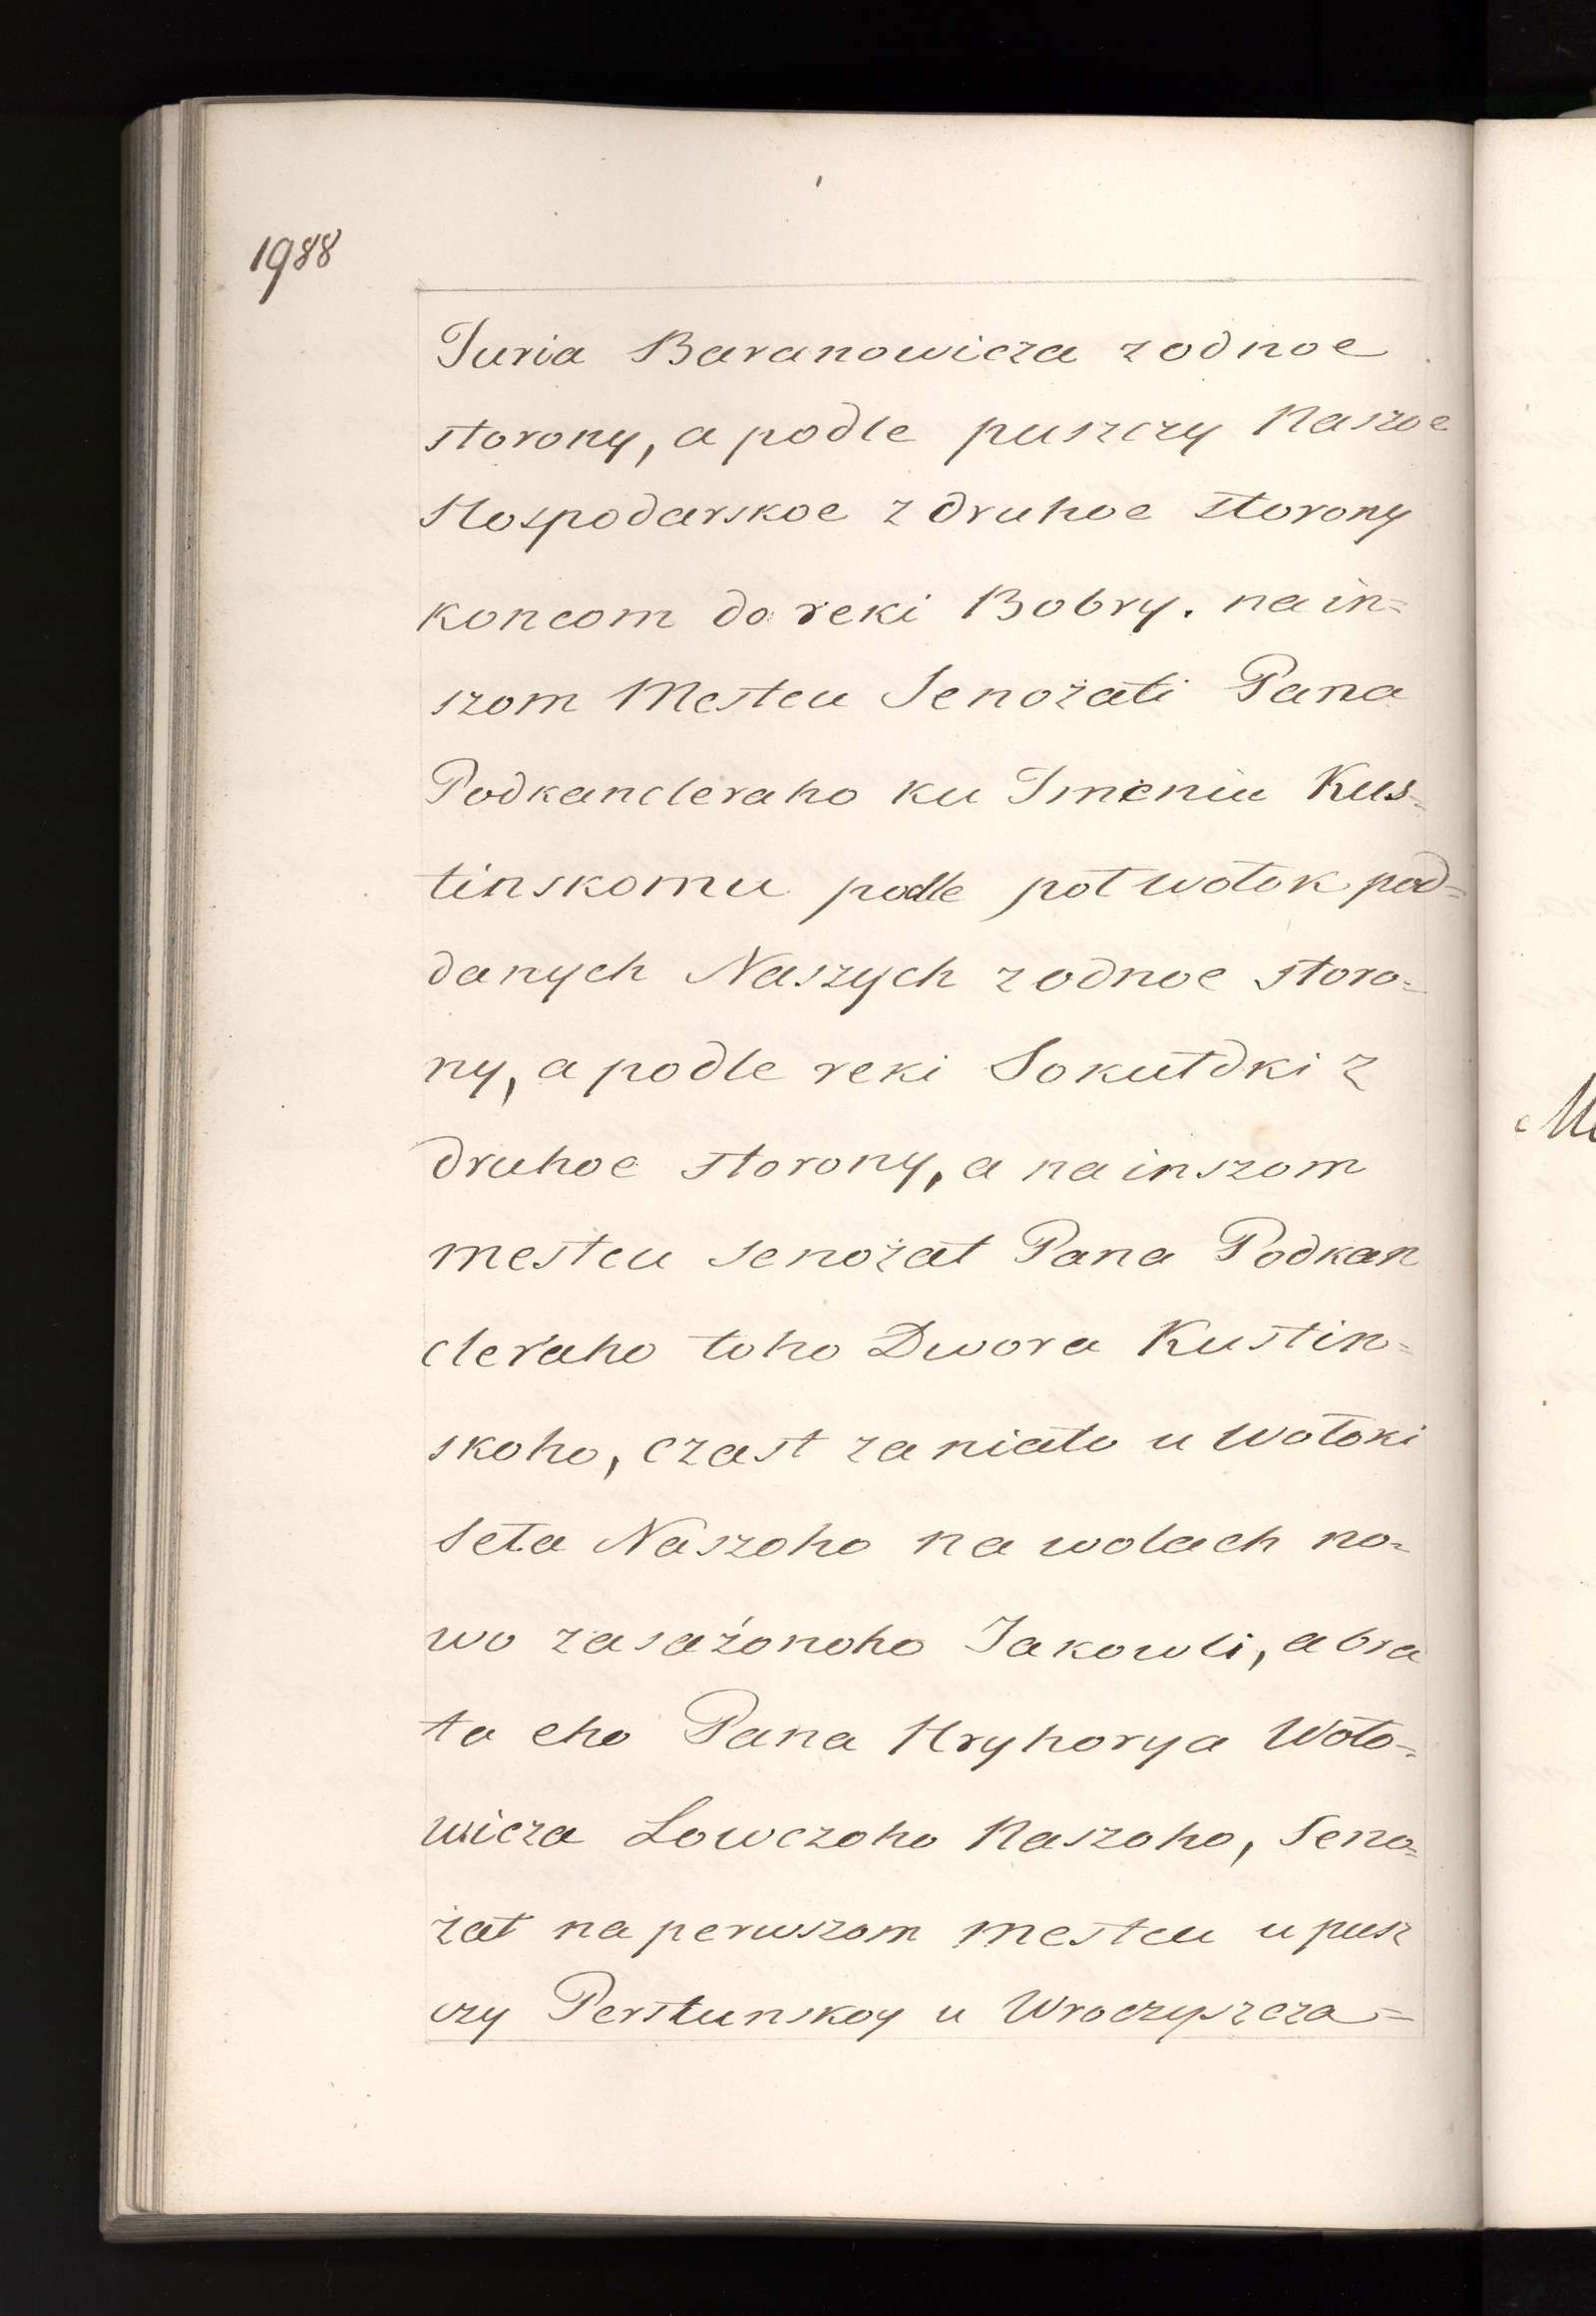 1988
Juria Baranowicza z odnoe
storony, a podle puszczy Naszoe
Hospodarskoe z druhoe storony
koncom do reki Bobry. na in=
szom Mestcu Senożati Pana
Podkancleraho ku Imeniu Kus=
tinskomu podle poł wołok pod=
danych Naszych z odnoe storo=
ny, a podle reki Sokułdki z
druhoe storony, a na inszom
mestcu senożat Pana Podkan
cleraho toho Dwora Kustin=
skoho, czast zaniato u Wołoki
Seła Naszoho na wolach no=
wo zasażonoho Jakowli, a bra
ta eho Pana Hryhorya Woło=
wicza Łowczoho Naszoho, Seno=
żat na perwszom mestcu u pusz
czy Perstunskoy u Wroczyszcza=